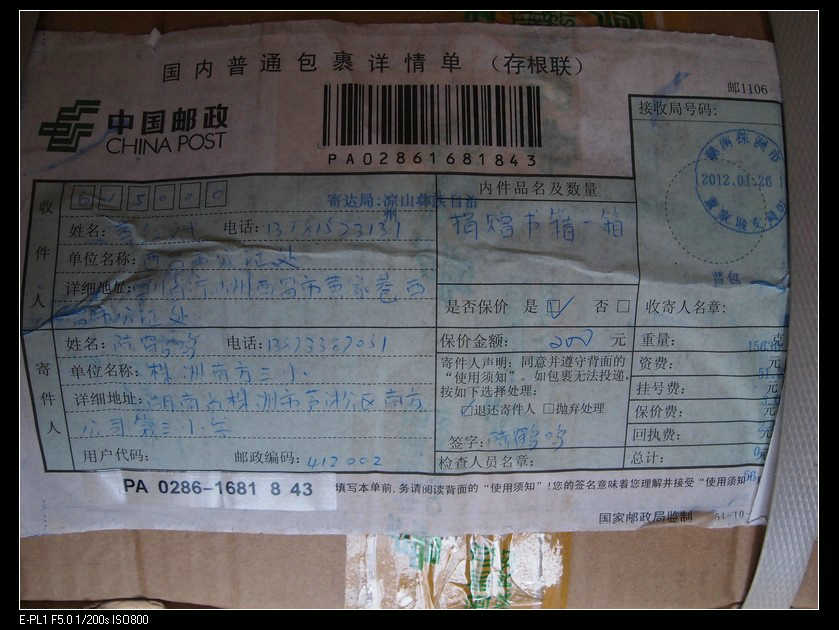 国内普通包裹详情单 (存根联)
邮1106
中国邮政
CHINA POST
PA02861681843
接收局号码:
收件人
615000
寄达局:凉山彝族自治州
姓名:
电话:
单位名称:
详细地址:
内件品名及数量
捐赠书籍一箱
2012.01.26
普包
是否保价 是☑ 否□
收寄人名章:
寄件人
姓名: 陈鹤鸣
电话:
单位名称: 株洲南方三小
详细地址: 湖南省株洲市芦淞区南方
公司第三小学
用户代码:
邮政编码: 412002
保价金额: 200 元
寄件人声明: 同意并遵守背面的
“使用须知”。如包裹无法投递,
按如下选择处理:
☑退还寄件人 □抛弃处理
签字: 陈鹤鸣
检查人员名章:
重量: 克
资费: 元
挂号费: 元
保价费: 元
回执费: 元
总计: 元
PA 0286-1681 8 43
填写本单前,务请阅读背面的“使用须知”!您的签名意味着您理解并接受“使用须知
国家邮政局监制
E-PL1 F5.0 1/200s ISO800